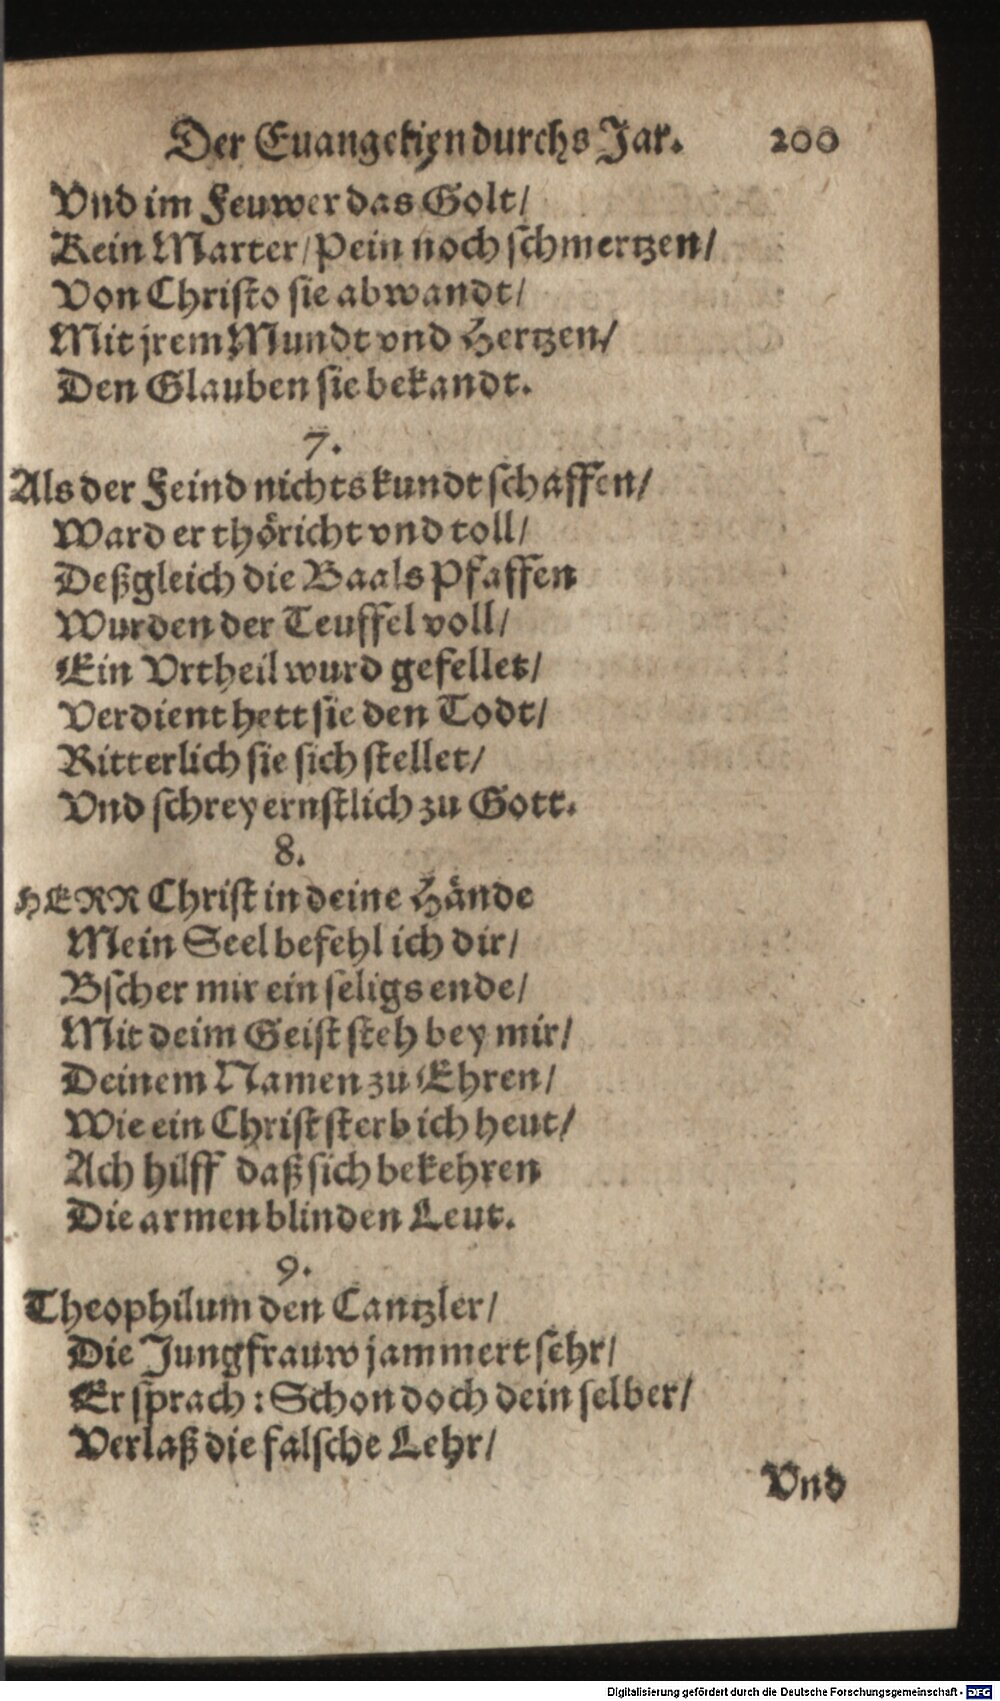 Der Euangeliẽn durchs Jar. 200
Vnd im Feuwer das Golt/
Kein Marter/Pein noch schmertzen/
Von Christo sie abwandt/
Mit jrem Mundt vnd Hertzen/
Den Glauben sie bekandt.
7.
Als der Feind nichts kundt schaffen/
Ward er thöricht vnd toll/
Deßgleich die Baals Pfaffen
Wurden der Teuffel voll/
Ein Vrtheil wurd gefellet/
Verdient hett sie den Todt/
Ritterlich sie sich stellet/
Vnd schrey ernstlich zu Gott.
8.
HERR Christ in deine Hände
Mein Seel befehl ich dir/
Bscher mir ein seligs ende/
Mit deim Geist steh bey mir/
Deinem Namen zu Ehren/
Wie ein Christ sterb ich heut/
Ach hilff daß sich bekehren
Die armen blinden Leut.
9.
Theophilum den Cantzler/
Die Jungfrauw jammert sehr/
Er sprach: Schon doch dein selber/
Verlaß die falsche Lehr/
Vnd
Digitalisierung gefördert durch die Deutsche Forschungsgemeinschaft - DFG